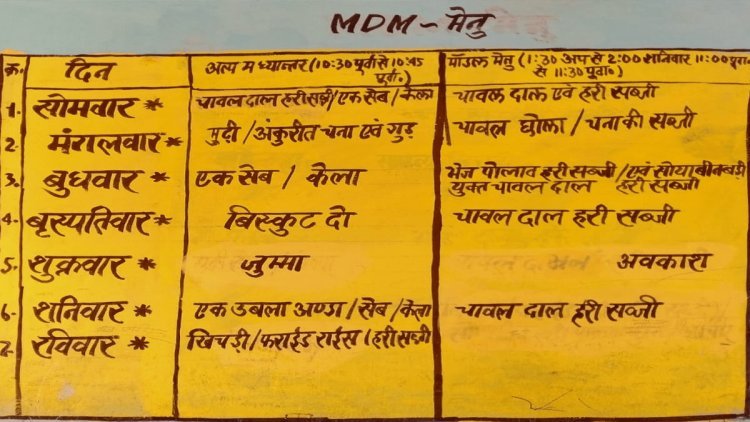 MDM - मेनु
क्र. दिन अल्प मध्यान्तर (10:30 पूर्वा से 10:45 पूर्वा.) मॉडल मेनु (1:30 अप से 2:00 शनिवार 11:00 पूर्वा से 11:30 पूर्वा.)
1. सोमवार * चावल दाल हरी सब्जी / एक सेब / केला चावल दाल एवं हरी सब्जी
2. मंगलवार * मुढ़ी / अंकुरीत चना एवं गुड़ चावल छोला / चना की सब्जी
3. बुधवार * एक सेब / केला भेज पोलाव हरी सब्जी / एवं सोयाबीन बड़ी
युक्त चावल दाल हरी सब्जी
4. बृस्पतिवार * बिस्कुट दो चावल दाल हरी सब्जी
5. शुक्रवार * जुम्मा अवकाश
6. शनिवार * एक उबला अण्डा / सेब / केला चावल दाल हरी सब्जी
7. रविवार * खिचड़ी / फराईड राईस / हरी सब्जी